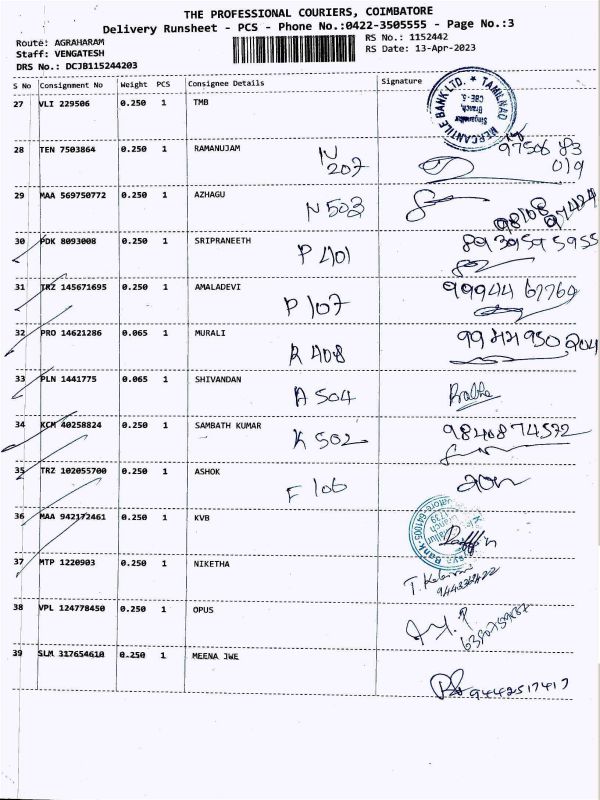 THE PROFESSIONAL COURIERS, COIMBATORE
Delivery Runsheet - PCS - Phone No.:0422-3505555 - Page No.:3
Route: AGRAHARAM
Staff: VENGATESH
DRS No.: DCJB115244203
RS No.: 1152442
RS Date: 13-Apr-2023
S No Consignment No Weight PCS Consignee Details Signature
27 VLI 229506 0.250 1 TMB
TAMILNAD MERCANTILE BANK LTD.
Singanallur
Branch
CBE - 5.
28 TEN 7503864 0.250 1 RAMANUJAM N 207 97506 83 019
29 MAA 569750772 0.250 1 AZHAGU N 503 98108 97424
30 PDK 8093008 0.250 1 SRIPRANEETH P 401 893959 5955
31 TRZ 145671695 0.250 1 AMALADEVI P 107 99944 67764
32 PRO 14621286 0.065 1 MURALI R 408
33 PLN 1441775 0.065 1 SHIVANDAN A 504 Prabha
34 KCM 40258824 0.250 1 SAMBATH KUMAR K 502 9840874572
35 TRZ 102055700 0.250 1 ASHOK F 106
36 MAA 942172461 0.250 1 KVB
37 MTP 1220903 0.250 1 NIKETHA
38 VPL 124778450 0.250 1 OPUS
39 SLM 317654610 0.250 1 MEENA JWE 9442517417